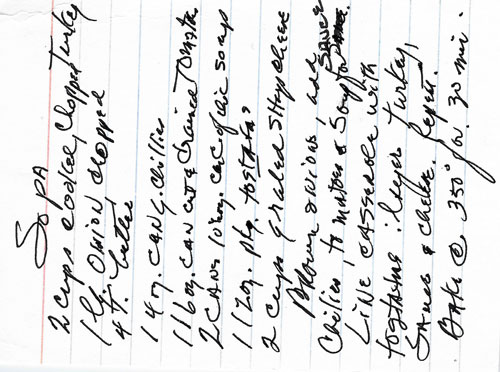 SOPA
2 cups cooked, chopped Turkey
1 lg Onion chopped
4 T. butter
1 4 oz. can g. chillies
1 16 oz. can cut & drained Tomato
2 cans 10 oz. cr of chic soup
1 12 oz. pkg. tostados
2 cups grated sharp cheese
Brown onions, add
Chilies tomatoes & Soup for sauce
Line casserole with
tostados; layer Turkey,
Sauce & cheese. Repeat.
Bake @ 350° for 30 min.